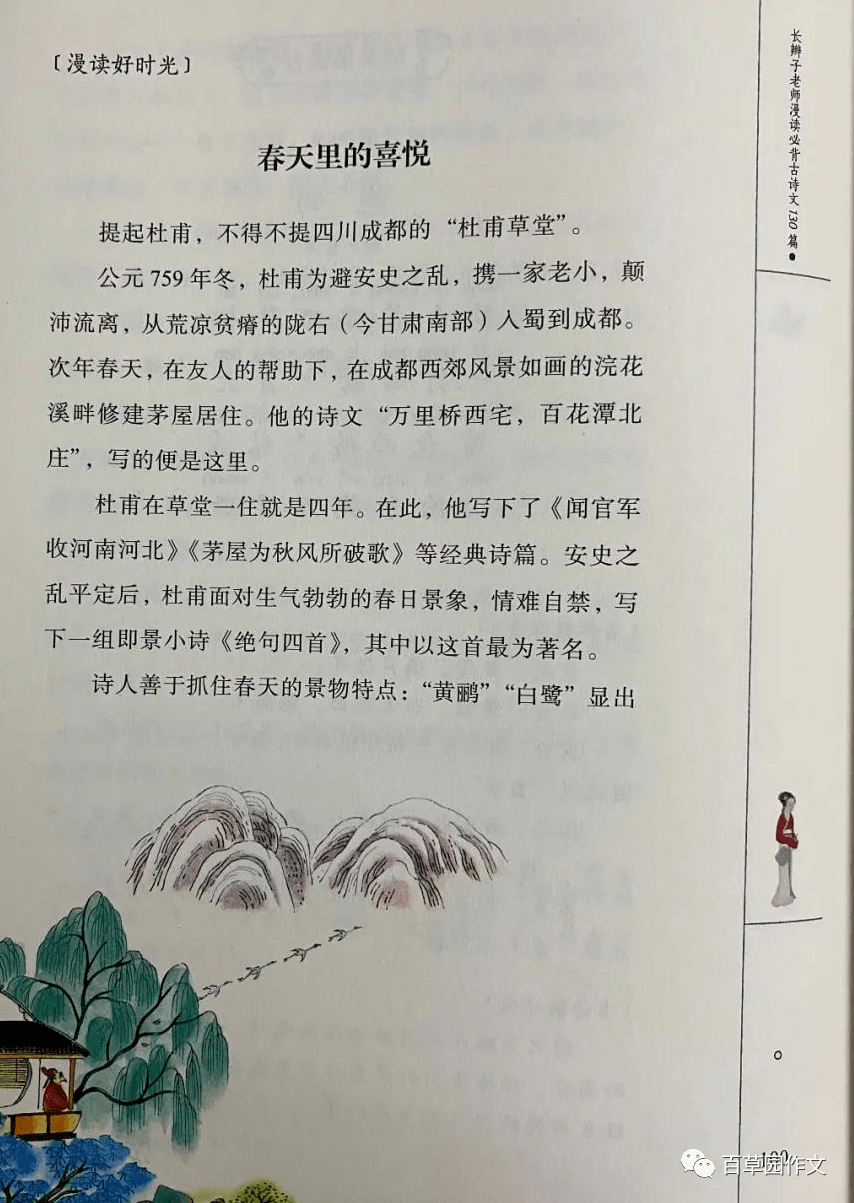 〔漫读好时光〕
春天里的喜悦
提起杜甫，不得不提四川成都的“杜甫草堂”。
公元759年冬，杜甫为避安史之乱，携一家老小，颠
沛流离，从荒凉贫瘠的陇右（今甘肃南部）入蜀到成都。
次年春天，在友人的帮助下，在成都西郊风景如画的浣花
溪畔修建茅屋居住。他的诗文“万里桥西宅，百花潭北
庄”，写的便是这里。
杜甫在草堂一住就是四年。在此，他写下了《闻官军
收河南河北》《茅屋为秋风所破歌》等经典诗篇。安史之
乱平定后，杜甫面对生气勃勃的春日景象，情难自禁，写
下一组即景小诗《绝句四首》，其中以这首最为著名。
诗人善于抓住春天的景物特点：“黄鹂”“白鹭”显出
长辫子老师漫读必背古诗文130篇●
百草园作文